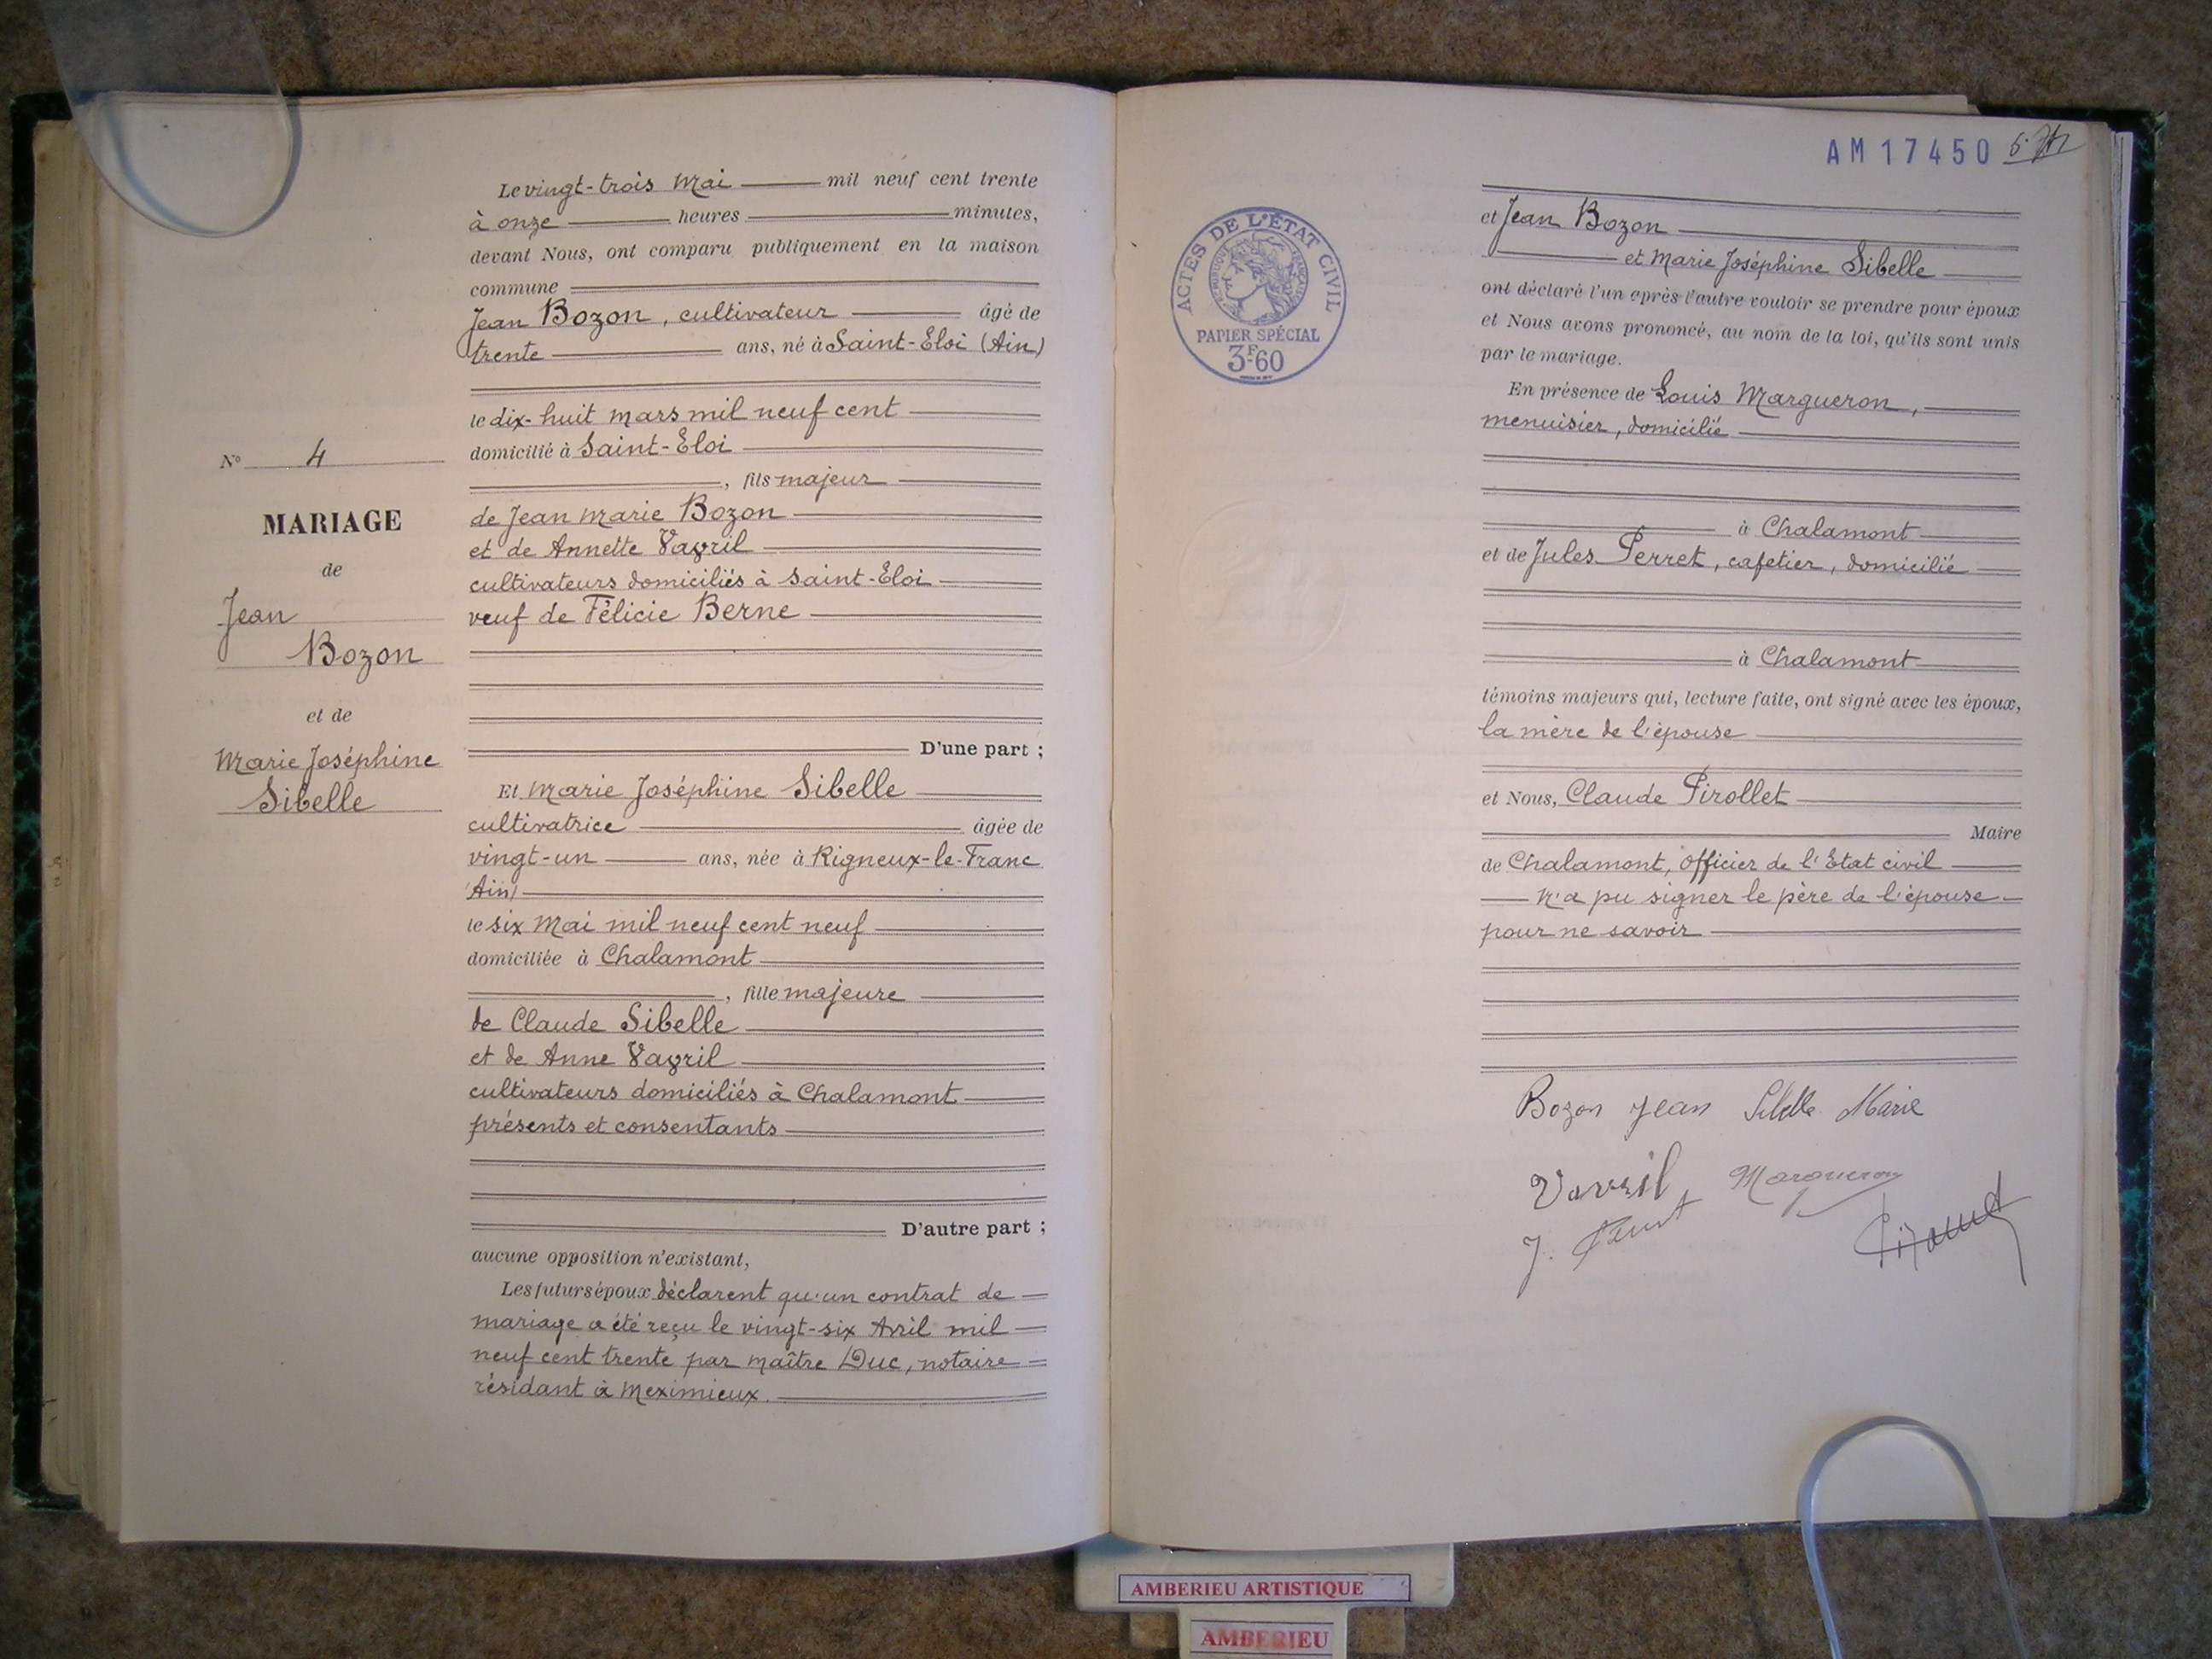 Nº 4
MARIAGE
de
Jean
Bozon
et de
Marie Joséphine
Sibelle
Le vingt-trois Mai mil neuf cent trente
à onze heures minutes,
devant Nous, ont comparu publiquement en la maison
commune
Jean Bozon, cultivateur âgé de
trente ans, né à Saint-Eloi (Ain)
le dix-huit mars mil neuf cent
domicilié à Saint-Eloi
, fils majeur
de Jean Marie Bozon
et de Annette Vavril
cultivateurs domiciliés à Saint-Eloi
veuf de Félicie Berne
D'une part ;
Et Marie Joséphine Sibelle
cultivatrice âgée de
vingt-un ans, née à Rigneux-le-Franc
(Ain)
le six Mai mil neuf cent neuf
domiciliée à Chalamont
, fille majeure
de Claude Sibelle
et de Anne Vavril
cultivateurs domiciliés à Chalamont
présents et consentants
D'autre part ;
aucune opposition n'existant,
Les futurs époux déclarent qu'un contrat de
mariage a été reçu le vingt-six Avril mil
neuf cent trente par maître Duc, notaire
résidant à Meximieux.
AM17450
ACTES DE L'ÉTAT CIVIL
RÉPUBLIQUE FRANÇAISE
PAPIER SPÉCIAL
3F60
et Jean Bozon
et Marie Joséphine Sibelle
ont déclaré l'un après l'autre vouloir se prendre pour époux
et Nous avons prononcé, au nom de la loi, qu'ils sont unis
par le mariage.
En présence de Louis Margueron,
menuisier, domicilié
à Chalamont
et de Jules Perret, cafetier, domicilié
à Chalamont
témoins majeurs qui, lecture faite, ont signé avec les époux,
la mère de l'épouse
et Nous, Claude Pirollet
Maire
de Chalamont, officier de l'Etat civil
N'a pu signer le père de l'épouse
pour ne savoir
Bozon Jean Sibelle Marie
Vavril Margueron
J. Perret
AMBERIEU ARTISTIQUE
AMBERIEU